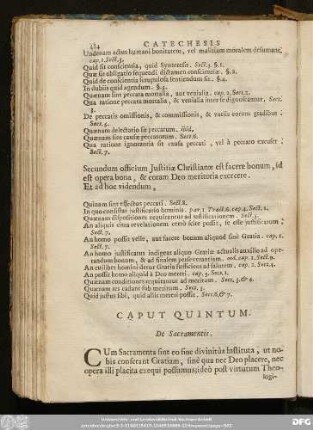 434 CATECHESIS
Undenam actus humani bonitatem, vel malitiam moralem desumant,
cap. 1. Sect. 3.
Quid sit conscientia, quid Synteresis. Sect. 3. §. 1.
Quæ sit obligatio sequendi dictamen conscientiæ. §. 2.
Quid de conscientia scrupulosa sentiendum sit. §. 4.
In dubiis quid agendum. §.
Quænam sint peccata mortalia, aut venialia. cap. 2. Sect. 2.
Qua ratione peccata mortalia, & venialia inter se dignoscantur. Sect. 3.
De peccatis omissionis, & commissionis, & variis eorum gradibus:
Sect. 4.
Quænam delectatio sit peccatum. ibid.
Quænam sint causæ peccatorum. Sect. 6.
Qua ratione ignorantia sit causa peccati, vel à peccato excuset?
Sect. 7.
Secundum officium Justitiæ Christianæ est facere bonum, id
est opera bona, & coram Deo meritoria exercere.
Et ad hoc videndum,
Quinam sint effectus peccati. Sect. 8.
In quo consistat justificatio hominis.
Quænam dispositiones requirantur ad justificationem. Sect. 5.
An aliquis citra revelationem certò scire possit, se esse justificatum?
Sect. 7.
An homo possit velle, aut facere bonum aliquod sine Gratia. cap. 1.
Sect. 7.
An homo justificatus indigeat aliquo Gratiæ actualis auxilio ad operandum
bonum, & ad finalem perseverantiam. Sect. 9.
An cuilibet homini detur Gratia sufficiens ad salutem. cap. 2. Sect. 4.
An posse homo aliquid à Deo mereri. cap. 3. Sect. 1.
Quænam conditiones requirantur ad meritum. Sect. 3. & 4.
Quænam res cadant sub meritum. Sect. 5.
Quid justus sibi, quid aliis mereri possit. Sect. 6. & 7.
CAPUT QUINTUM.
De Sacramentis.
CUm Sacramenta sint eo fine divinitùs instituta, ut nobis
conferant Gratiam, sine qua nec Deo placere, nec
opera illi placita exequi possumus; ideò post virtutum Theo-
logi-